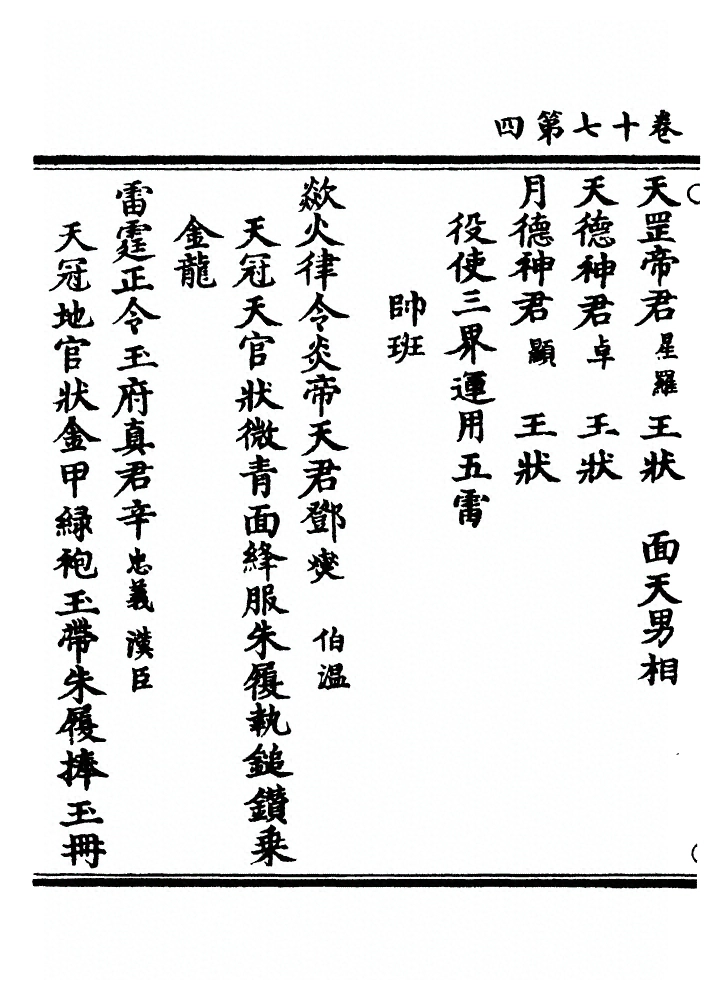 卷十七第四
天罡帝君 星羅 王狀 面天男相
天德神君 卓 王狀
月德神君 顯 王狀
役使三界運用五雷
帥班
欻火律令炎帝天君鄧 燮 伯溫
天冠天官狀微青面絳服朱履執鎚鑽乘
金龍
雷霆正令玉府真君辛 忠義 漢臣
天冠地官狀金甲緑袍玉帶朱履捧玉冊